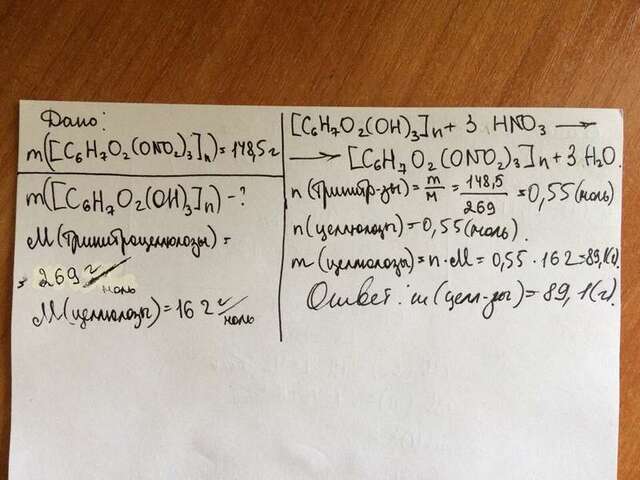 Дано:
m([C6H7O2(ONO2)3]n) = 148,5 г
m([C6H7O2(OH)3]n) - ?
M(тринитроцеллюлозы) =
= 269 г/моль
M(целлюлозы) = 162 г/моль
[C6H7O2(OH)3]n + 3 HNO3 →
→ [C6H7O2(ONO2)3]n + 3 H2O.
n(тринитр-зы) = m/M = 148,5/269 = 0,55 (моль)
n(целлюлозы) = 0,55 (моль).
m(целлюлозы) = n·M = 0,55 · 162 = 89,1(г).
Ответ: m(целл-зы) = 89,1(г).